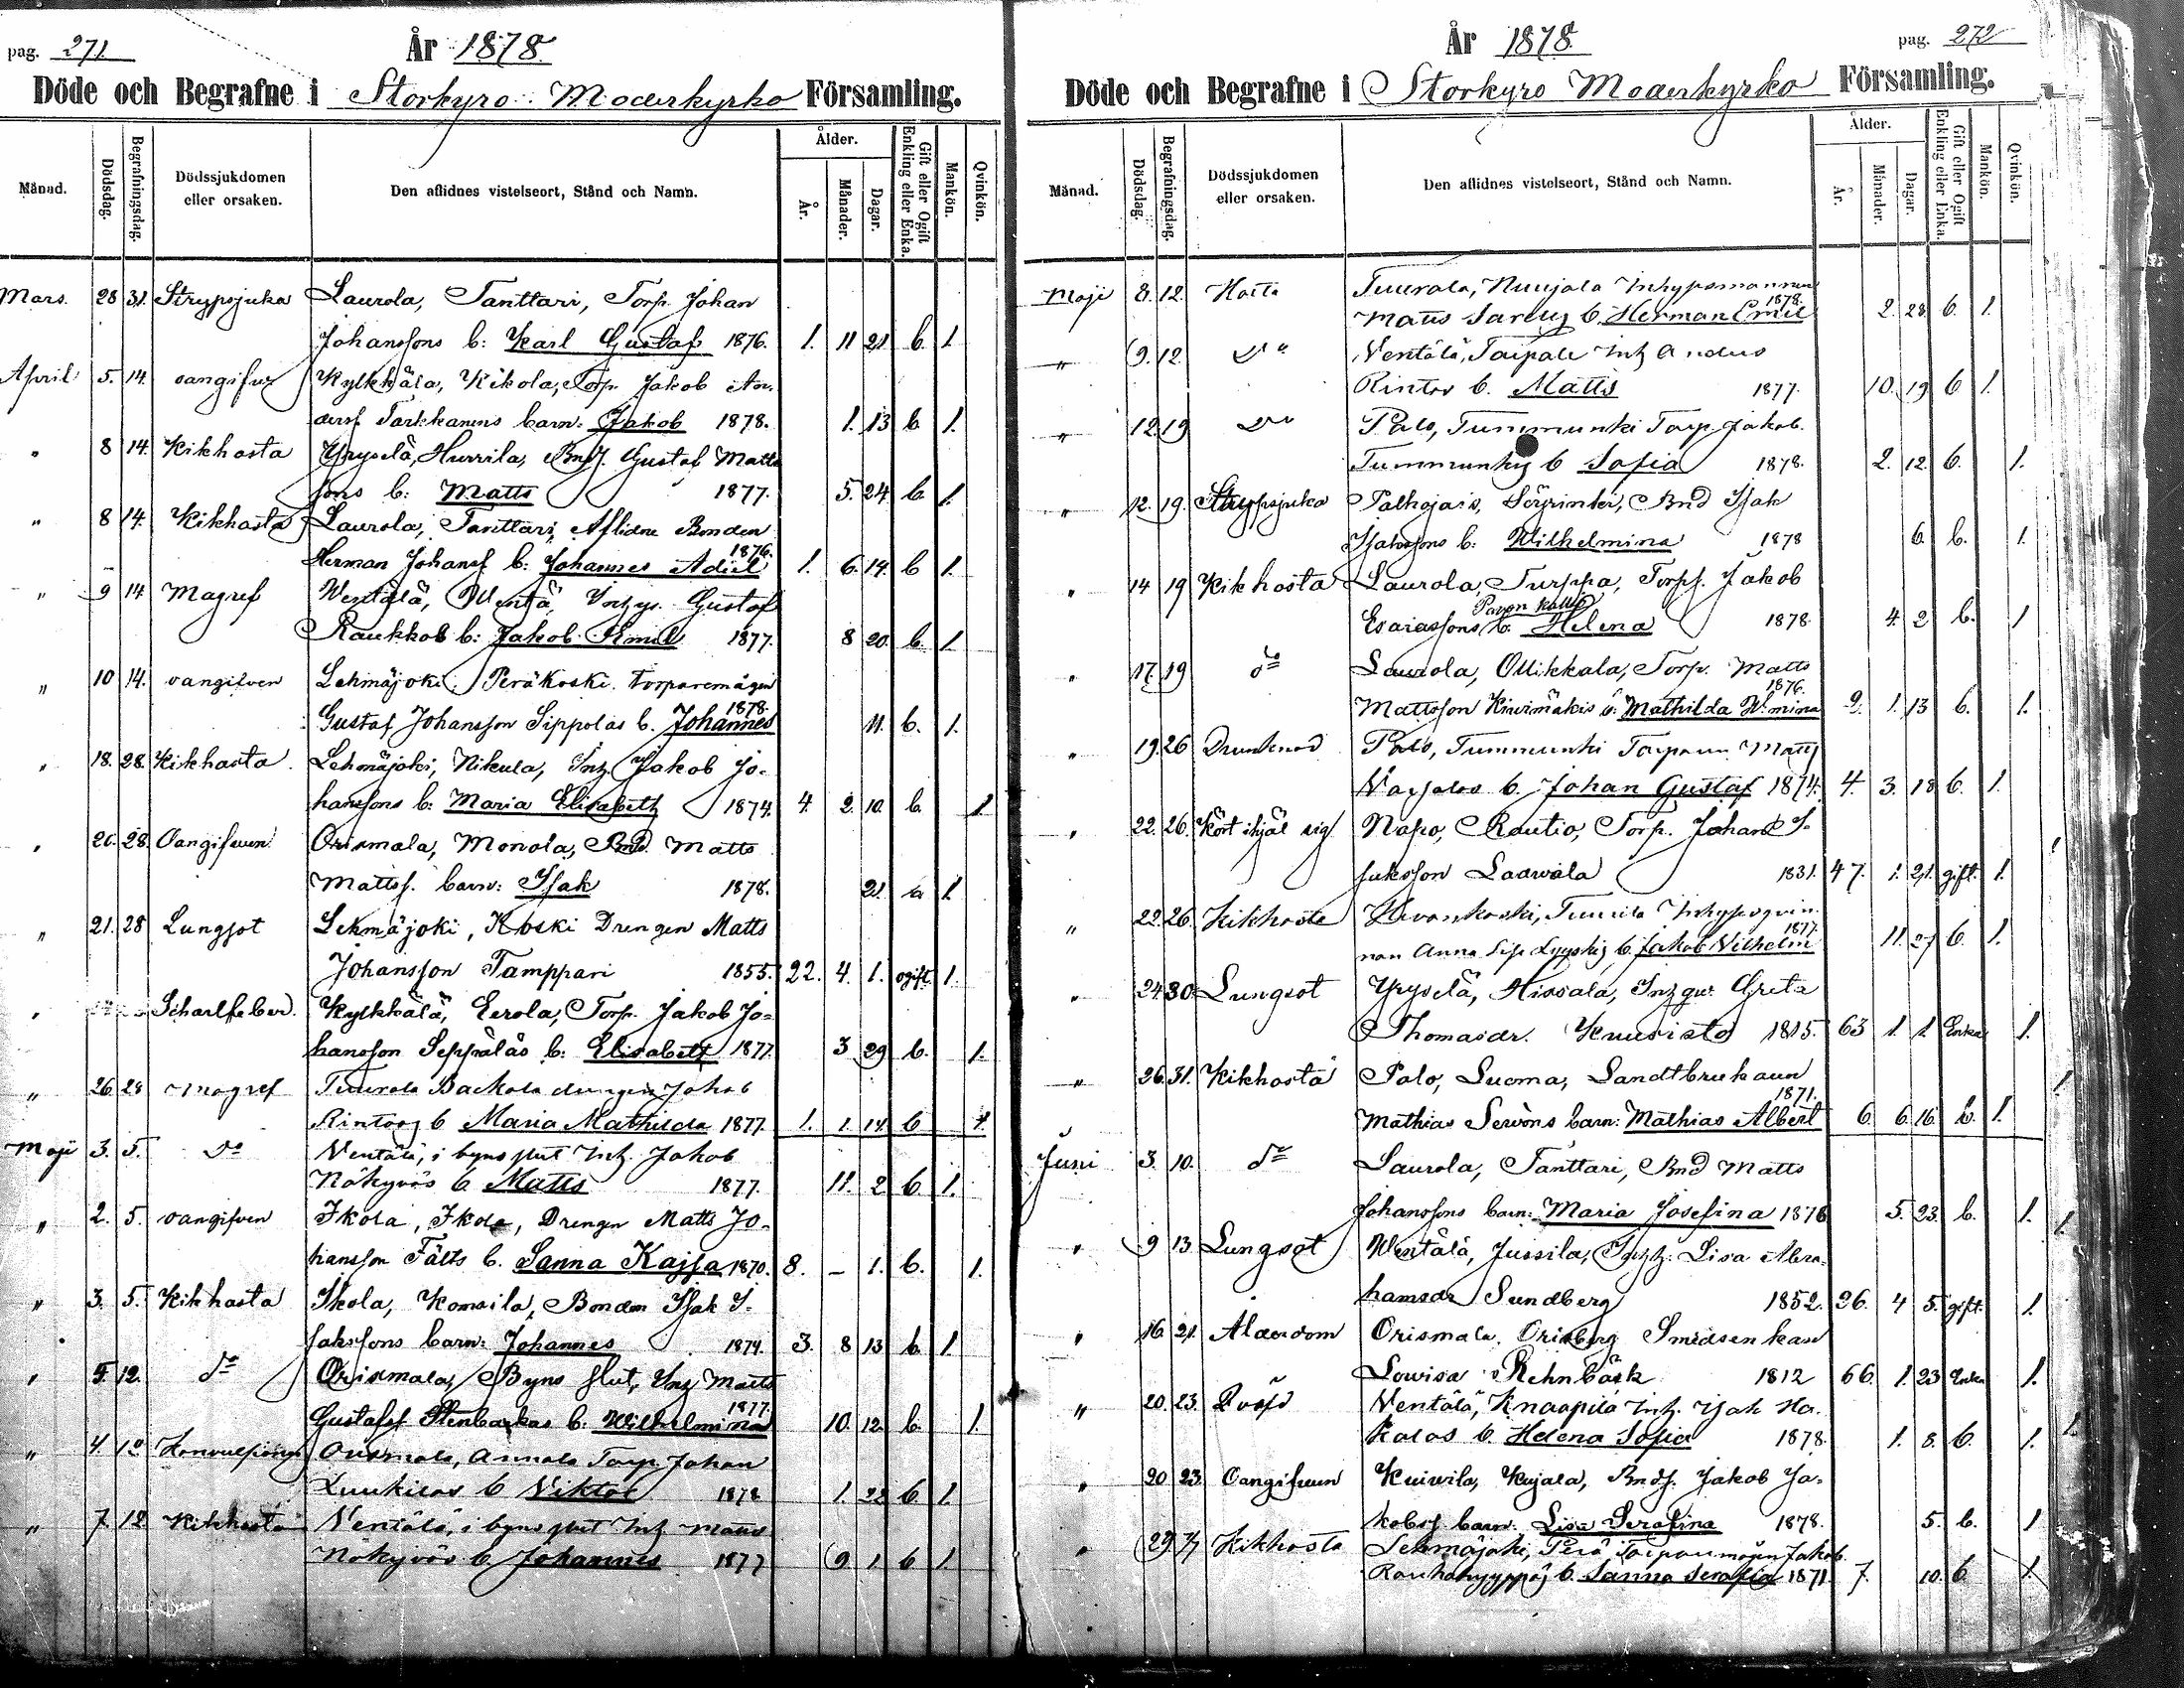 pag. 271.
År 1878.
Döde och Begrafne i Storkyro Moderkyrko Församling.
Månad.
Dödsdag.
Begrafningsdag.
Dödssjukdomen eller orsaken.
Den aflidnes vistelseort, Stånd och Namn.
Ålder.
År.
Månader.
Dagar.
Gift eller Ogift Enkling eller Enka.
Mankön.
Qvinkön.
Mars. 28 31. Strypsjuka Laurola, Tanttari, Torp. Johan
Johanssons b: Karl Gustaf 1876. 1. 11 21 b. 1
April 5. 14. Kylkkälä, Kikola, Torp. Jakob An-
derss. Tarkkanens barn: Jakob 1878. 1. 13 b. 1.
" 8 14. Kikhosta Yryselä, Hurrila, Gustaf Matts
sons b: Matts 1877. 5. 24 b. 1.
" 8 14. Kikhosta Laurola, Tanttari, Aflidne Bonden
Herman Johanss. b: Johannes Adiel 1876. 1. 6. 14. b 1.
" 9 14 Magref Wentälä, Wentä, Gustaf
b: Jakob Emil 1877. 8 20. b. 1.
" 10 14. oangifven Lehmäjoki, Peräkoski. torparemågen
Gustaf Johansson Sippolas b. Johannes 1878. 11. b. 1.
" 18. 28. Kikhosta Lehmäjoki, Nikula, Inh. Jakob Jo-
hanssons b: Maria Elisabeth 1874. 4. 2. 10. b. 1.
" 20. 28. Oangifven Orismala, Monola, Bnd. Matts
Mattss. barn: Isak 1878. 21. 1.
" 21. 28 Lungsot Lehmäjoki, Koski Drengen Matts
Johansson Tamppari 1855. 22. 4. 1. ogift. 1.
" Scharlfeber. Kylkkälä, Eerola, Torp. Jakob Jo-
hansson Seppäläs b: Elisabeth 1877. 3 29 b. 1.
" 26. 28 Magref Tuurala Backola drengen Jakob
b Maria Mathilda 1877. 1. 1. 14 b 1.
Maji 3. 5. do Ventälä, i byns slut Inh. Jakob
Näkyvös b. Matts 1877. 11. 2 b. 1.
" 2. 5. oangifven Ikola, Ikola, Drengen Matts Jo-
hansson Fälts b. Sanna Kajsa 1870. 8. — 1. b. 1.
" 3. 5. Kikhosta Ikola, Komsila, Bonden Isak I-
sakssons barn: Johannes 1874. 3. 8 13 b. 1.
" 5. 12. do Orismala, Byns slut, Inh. Matts
Gustafss. Stenbackas b: Wilhelmina 1877. 10. 12 b. 1.
" 4. 12 Orismala, Annala Torp. Johan
Luukilas b Viktor 1878 1. 22 b. 1.
" 7. 12 Kikhosta Ventälä, i byns slut Inh. Matts
Näkyvös b. Johannes 1877 9 1 b 1.
pag. 272
År 1878.
Döde och Begrafne i Storkyro Moderkyrko Församling.
Månad.
Dödsdag.
Begrafningsdag.
Dödssjukdomen eller orsaken.
Den aflidnes vistelseort, Stånd och Namn.
Ålder.
År.
Månader.
Dagar.
Gift eller Ogift Enkling eller Enka.
Mankön.
Qvinkön.
Maji 8. 12. Hosta Tuurala, Nuujala
Matts b. Herman Emil 1878. 2. 28 b. 1.
" 9. 12. do Ventälä, Taipale Inh Anders
Rintas b. Matts 1877. 10. 19 b 1.
" 12. 19 do Palo, Tummunki Torp. Jakob
b Sofia 1878. 2. 12. b. 1.
" 12. 19. Strypsjuka Palhojais, Bnd Isak
Isakssons b: Wilhelmina 1878 6. b. 1.
" 14 19 Kikhosta Laurola, Turppa, Torps. Jakob
Esaiassons b: Helena 1878. 4. 2 b. 1
" 17. 19 do Laurola, Ollikkala, Torp. Matts
Mattsson Kivimäkis b: Mathilda W:mina 1876. 2. 1. 13 b. 1.
" 19. 26 Drunknad Palo, Tummunki
b. Johan Gustaf 1874. 4. 3. 18 b. 1.
" 22. 26. Kört ihjäl sig Napo, Rautio, Torp. Johan I-
saksson Laawala 1831. 47. 1. 21. gift. 1.
" 22. 26. Kikhosta Tuurila
nan Anna b. Jakob Vilhelm 1877. 11. 27 b. 1.
" 24. 30. Lungsot Yryselä, Hissala, Greta
Thomasdr. Knuuristo 1815. 63 1. 1. Enka 1.
" 26. 31. Kikhosta Palo, Luoma, Landtbrukaren
Mathias Servons barn: Mathias Albert 1871. 6. 6. 16. b. 1.
Juni 3. 10. do Laurola, Tanttari, Bnd Matts
Johanssons barn: Maria Josefina 1878 5. 23. b. 1.
" 9 13. Lungsot Wentälä, Jussila, Lisa Abra-
hamsdr Sundberg 1852. 26. 4 5. gift. 1.
" 16. 21. Ålderdom Orismala, Orisberg Smedsenkan
Lowisa Rehnbäck 1812 66. 1. 23 Enka 1.
" 20. 23. Ventälä, Knaapila Inh. Isak Ha-
kalas b. Helena Sofia 1878. 1. 8. b. 1.
" 20 23. Oangifven Kuivila, Kujala, Bnds. Jakob Ja-
kobss. barn: Lisa Serafina 1878. 5. b. 1
" 29 Kikhosta Lehmäjoki, Perä Jakob
b. Sanna Serafia 1871. 7. 10. b. 1